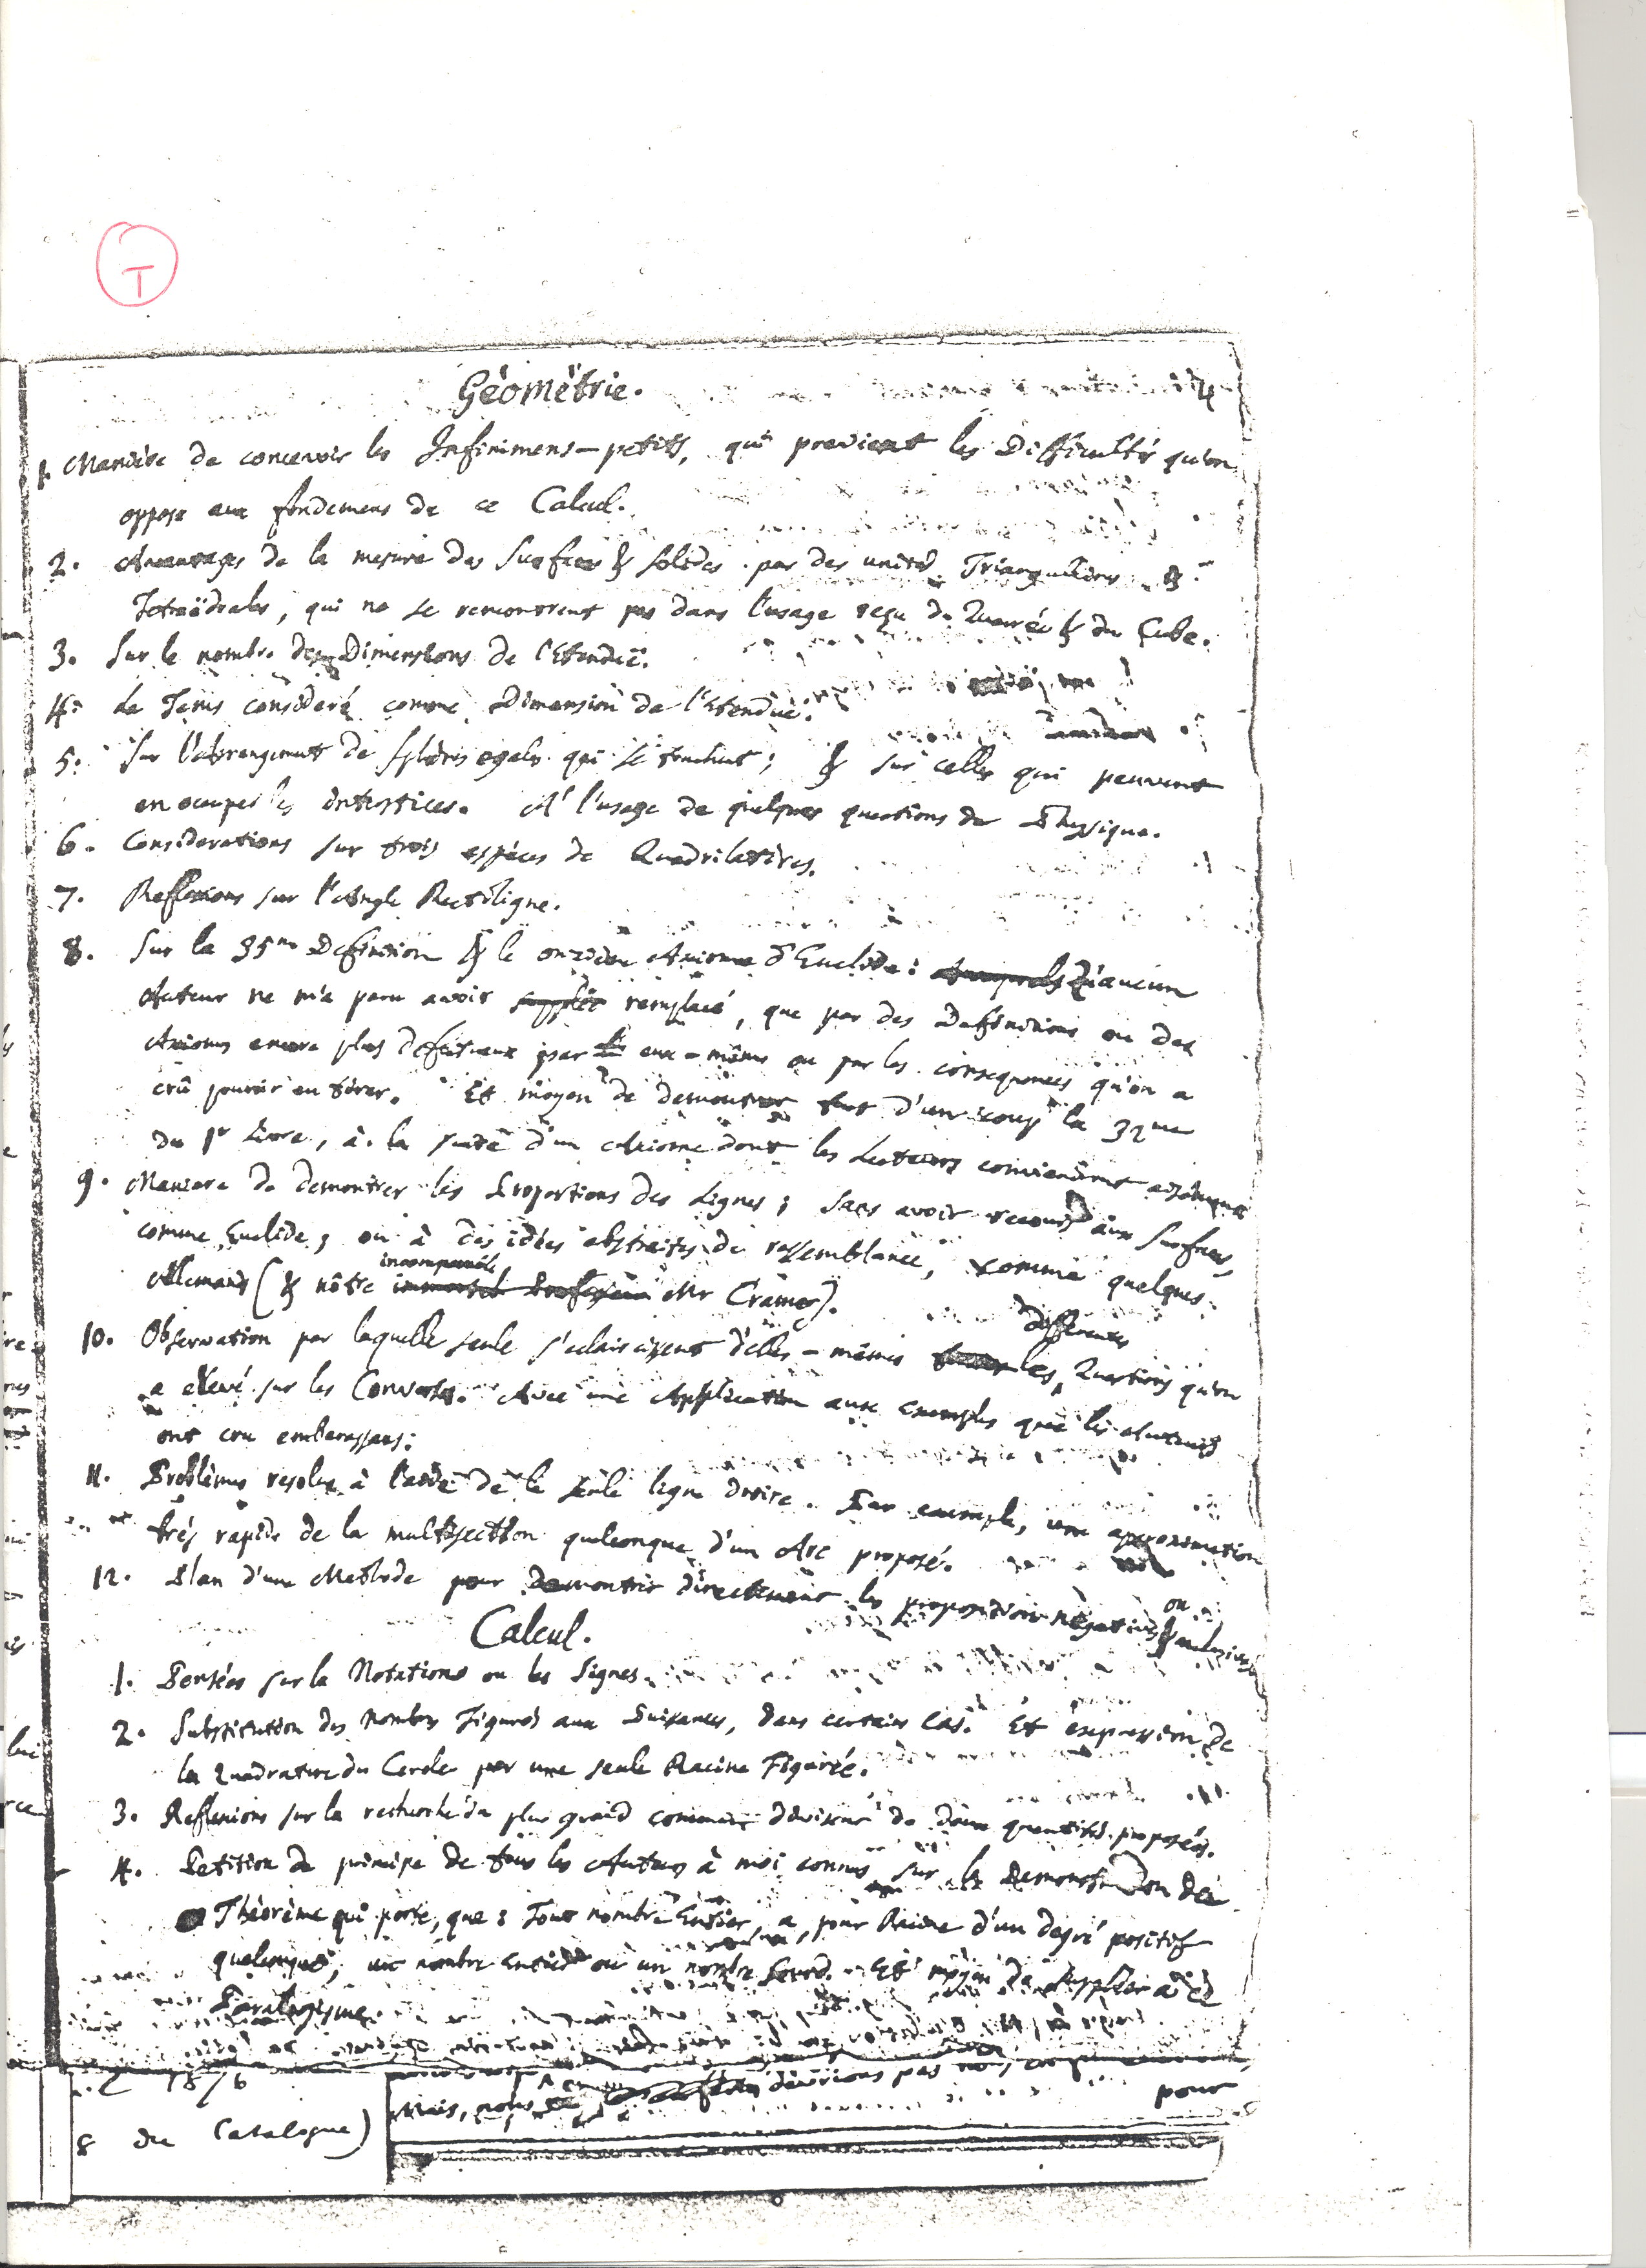 T
Géomètrie.
1. Maniére de concevoir les Infinimens-petits, qui previent les Difficultés qu'on
oppose aux fondemens de ce Calcul.
2. Avantages de la mesure des Surfaces & solides par des unités Triangulaires &
Tetraëdrales, qui ne se rencontrent pas dans l'usage reçu du Quarré & du Cube.
3. Sur le nombre des Dimensions de l'Etenduë.
4. Le Tems consideré comme Dimension de l'Etenduë.
5. Sur l'arrangement de spheres egales qui se touchent; & sur celles qui peuvent
en occuper les interstices. A l'usage de quelques questions de Physique.
6. Considerations sur trois espéces de Quadrilatères.
7. Reflexions sur l'Angle Rectiligne.
8. Sur la 35me Definition & le onzième Axiome d'Euclide: Qu'aucun
Auteur ne m'a paru avoir remplacé, que par des Definitions ou des
Axiomes encore plus defectueux par eux-mêmes ou par les consequences qu'on a
crû pouvoir en tirer. Et moyen de demontrer tout d'un coup la 32me
du 1r Livre, à la suite d'un Axiome dont les Lecteurs conviendront
9. Maniere de demontrer les Proportions des Lignes; sans avoir recours aux Surfaces,
comme Euclide; ou à des idées abstraites de ressemblance, comme quelques
Allemands (& nôtre incomparable immortel Professeur Mr Cramer).
10. Observation par laquelle seule s'eclaircissent d'elles-mêmes les differentes Questions qu'on
a elevé sur les Converses. Avec une Application aux Exemples que les Auteurs
ont cru embarassans.
11. Problêmes resolus à l'aide de la seule ligne droite. Par exemple, une approximation
très rapide de la multisection quelconque d'un Arc proposé.
12. Plan d'une Methode pour demontrer directement les propositions négatives ou &
Calcul.
1. Pensées sur la Notations ou les Signes.
2. Substitution des Nombres Figurés aux Puissances, dans certains Cas. Et expression de
la Quadrature du Cercle par une seule Racine Figurée.
3. Reflexions sur la recherche du plus grand commun diviseur de deux quantités proposées.
4. Petition de principe de tous les Auteurs à moi connus sur la Demonstration du
Théorème qui porte, que: Tout nombre Entier, a, pour Racine d'un degré positif
quelconque, un nombre Entier ou un nombre Sourd. Et moyen de suppléer à ce
Paralogisme.
Mais, nous devrions pas
pour
8 du Catalogue)